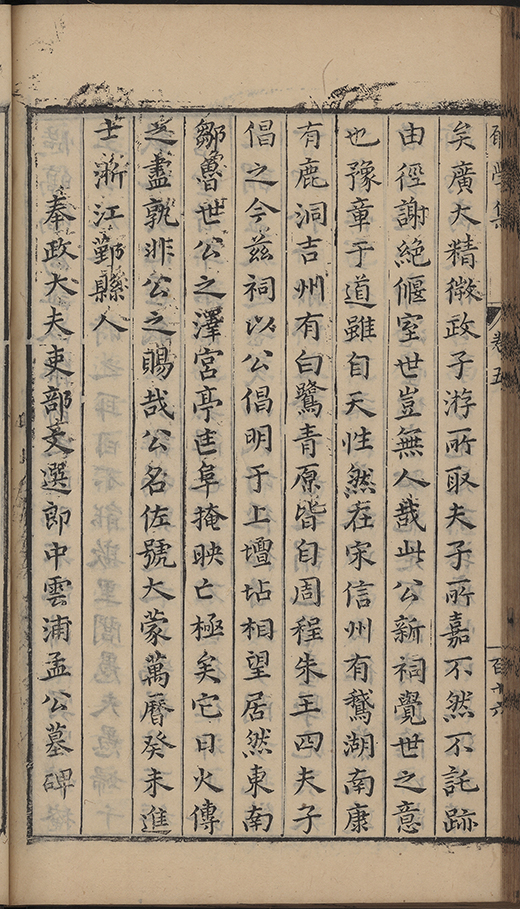 願學集 卷五
矣廣大精微政子游所取夫子所嘉不然不託跡
由徑謝絕偃室世豈無人哉此公新祠覺世之意
也豫章于道雖自天性然在宋信州有鵞湖南康
有鹿洞吉州有白鷺青原皆自周程朱王四夫子
倡之今兹祠以公倡明于上壇坫相望居然東南
鄒魯世公之澤宮亭匡阜掩映亡極矣它日火傳
之盡孰非公之賜哉公名佐號大蒙萬曆癸未進
士浙江鄞縣人
奉政大夫吏部文選郎中雲浦孟公墓碑